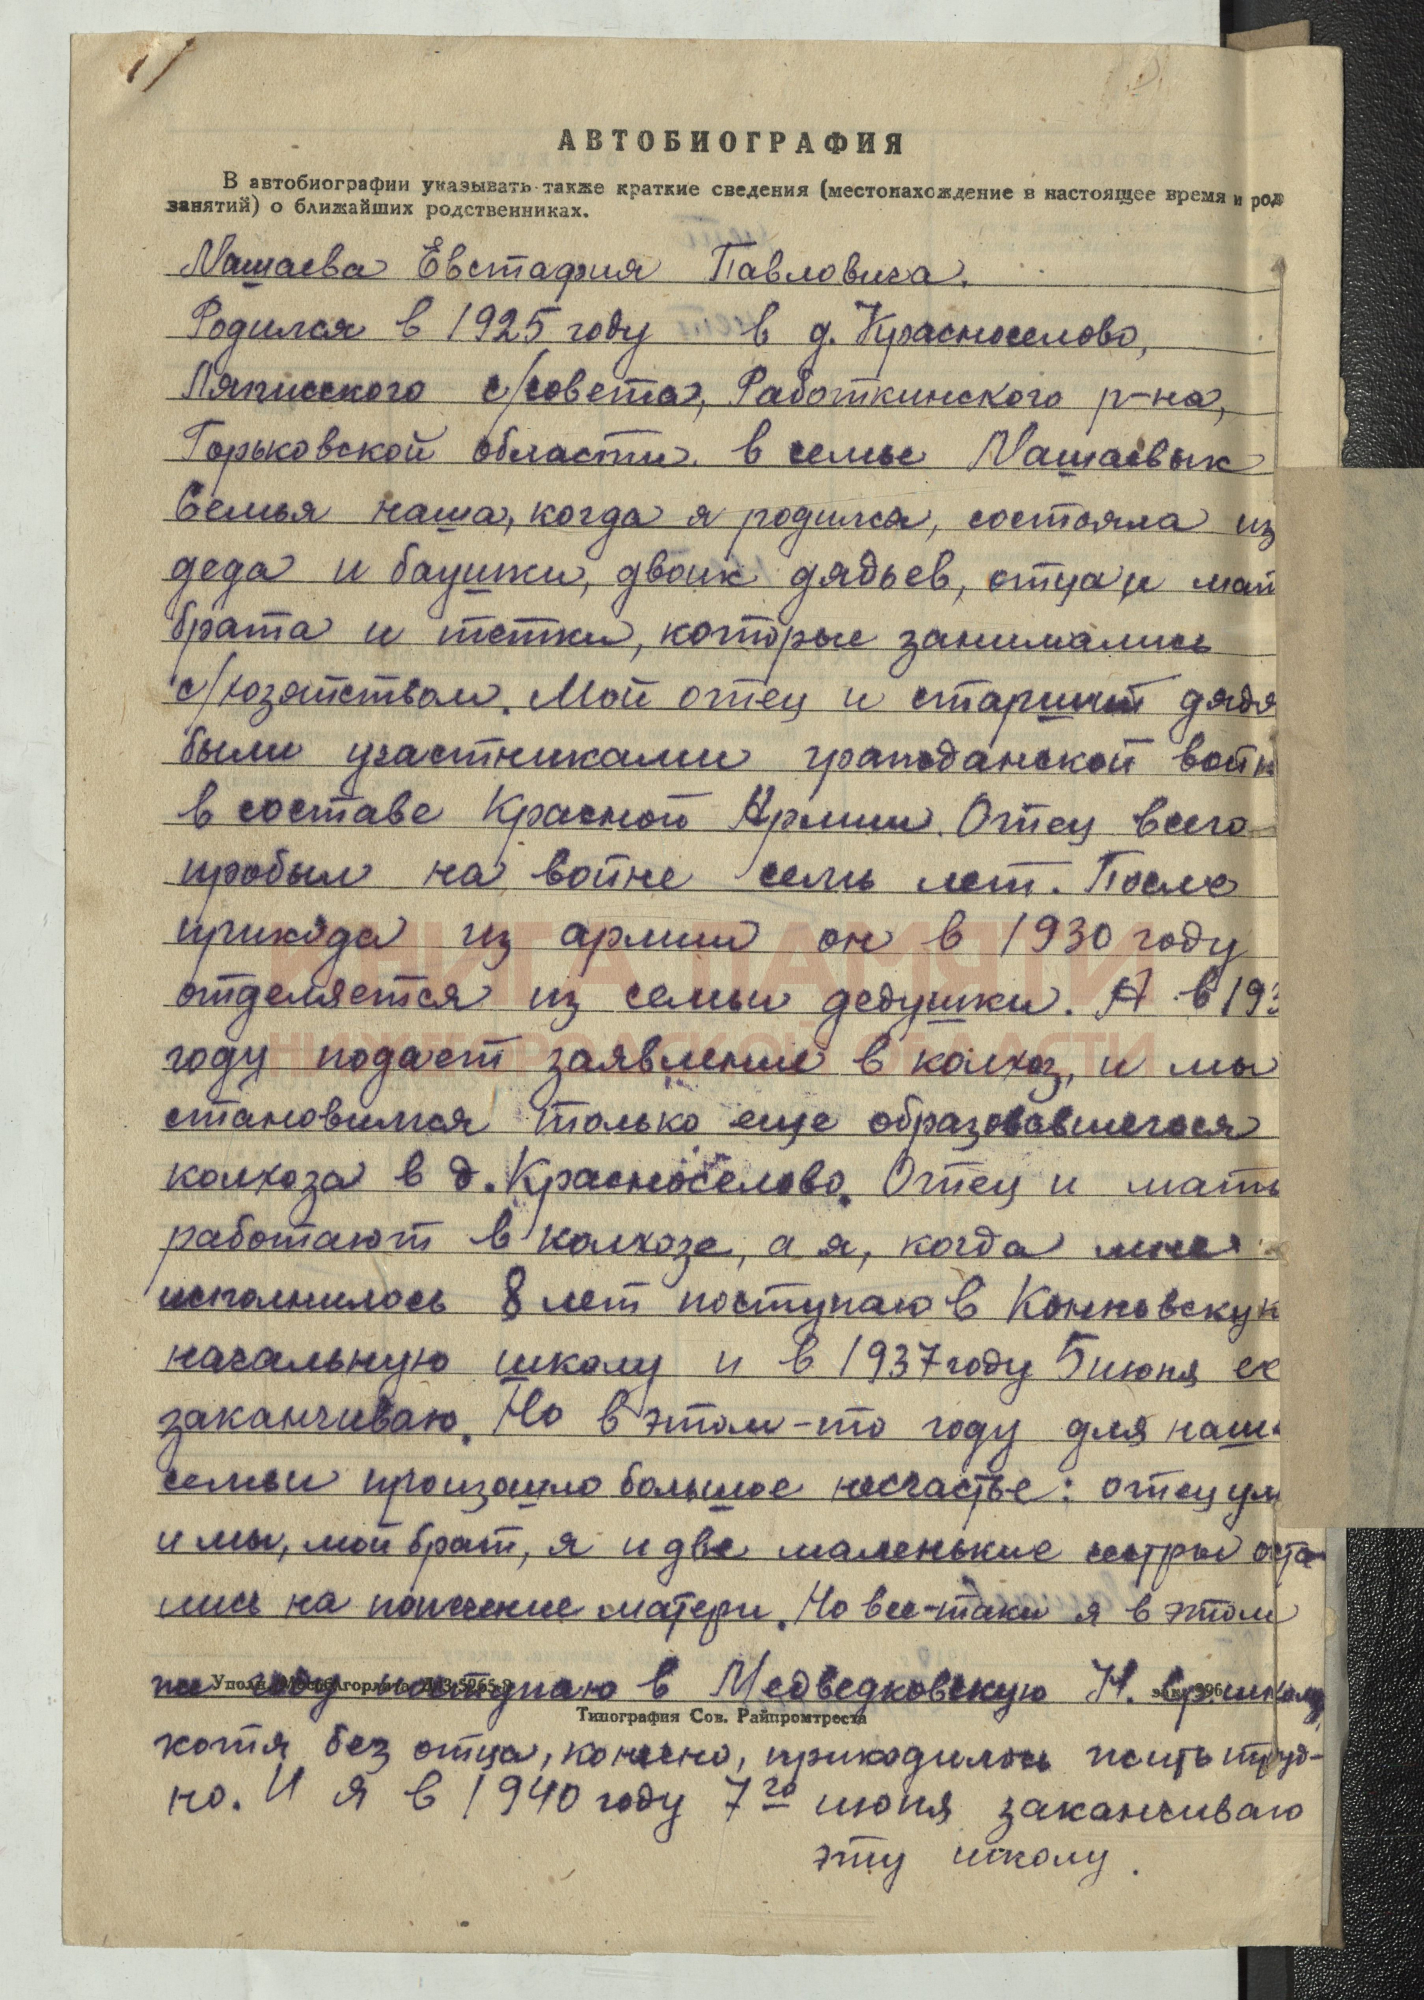 АВТОБИОГРАФИЯ
В автобиографии указывать также краткие сведения (местонахождение в настоящее время и род
занятий) о ближайших родственниках.
Машаева Евстафия Павловича.
Родился в 1925 году в д. Красноселово,
с/совета, Работкинского р-на,
Горьковской области в семье Машаевых
Семья наша, когда я родился, состояла из
деда и баушки, двоих дядьев, отца и мат
брата и тетки, которые занимались
с/хозяйством. Мой отец и старший дядя
были участниками гражданской войн
в составе Красной Армии. Отец всего
пробыл на войне семь лет. После
прихода из армии он в 1930 году
отделяется из семьи дедушки. А в 193
году подает заявление в колхоз, и мы
становимся только еще образовавшегося
колхоза в д. Красноселово. Отец и мать
работают в колхозе, а я, когда мне
исполнилось 8 лет поступаю в
начальную школу и в 1937 году 5 июня ее
заканчиваю. Но в этом-то году для наше
семьи произошло большое несчастье: отец ум
и мы, мой брат, я и две маленькие сестры оста-
лись на попечение матери. Но все-таки я в этом
же году поступаю в Медведковскую Н. ср. школу
Типография Сов. Райпромтреста
хотя без отца, конечно, приходилось жить труд-
но. И я в 1940 году 7го июня заканчиваю
эту школу.
КНИГА ПАМЯТИ
НИЖЕГОРОДСКОЙ ОБЛАСТИ